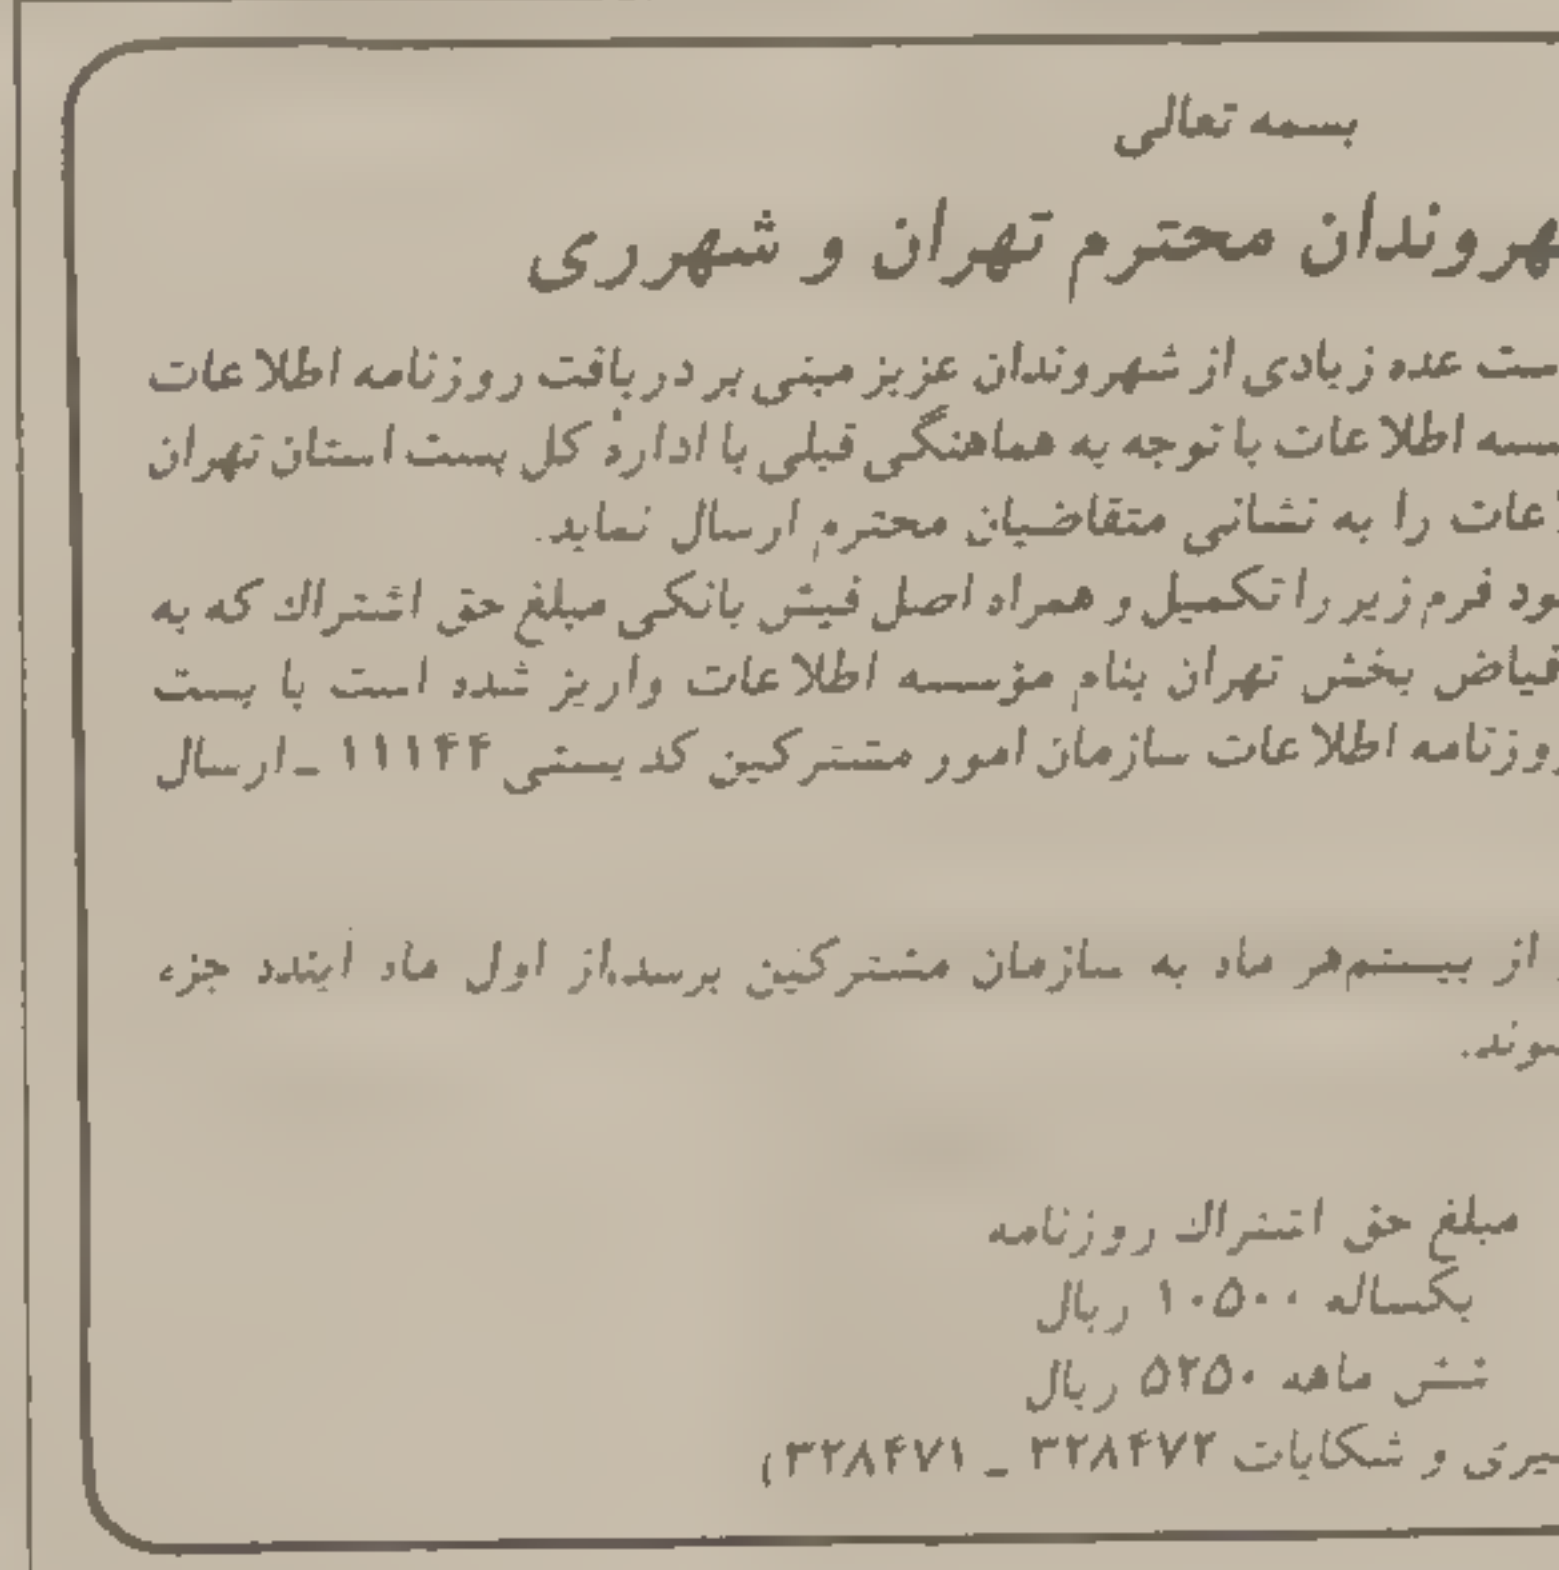 بسمه تعالی
هروندان محترم تهران و شهرری
ست عده زیادی از شهروندان عزیز مبنی بر دریافت روزنامه اطلاعات
سسه اطلاعات با توجه به هماهنگی قبلی با ادارهٔ کل پست استان تهران
عات را به نشانی متقاضیان محترم ارسال نماید.
ود فرم زیر را تکمیل و همراه اصل فیش بانکی مبلغ حق اشتراک که به
فیاض بخش تهران بنام مؤسسه اطلاعات واریز شده است با پست
روزنامه اطلاعات سازمان امور مشترکین کد پستی ۱۱۱۴۴ ـ ارسال
از بیستم هر ماه به سازمان مشترکین برسد، از اول ماه آینده جزء
شوند.
مبلغ حق اشتراک روزنامه
یکساله ۱۰۵۰۰ ریال
شش ماهه ۵۲۵۰ ریال
گیری و شکایات ۳۲۸۴۷۲ ـ ۳۲۸۴۷۱)